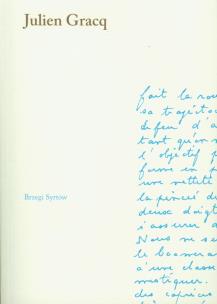 Julien Gracq
Brzegi Syrtów
fait la rou
sa trajéctoi
de feu d'a
tant qu'on
l'objectif p
forme en p
une netteté
la pince de
deux doigt
s'assurer d
Nous ne se
le boomeran
à une classe
mystiquer.
des caprices